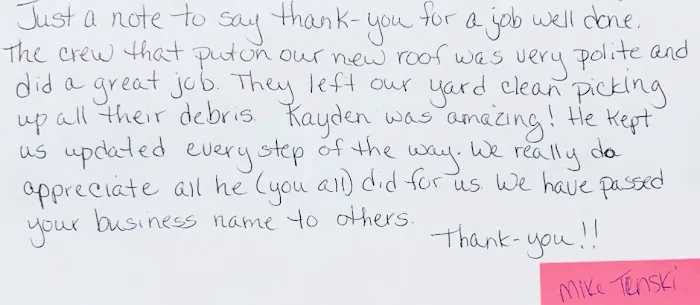 Just a note to say thank-you for a job well done.
The crew that put on our new roof was very polite and
did a great job. They left our yard clean picking
up all their debris. Kayden was amazing! He kept
us updated every step of the way. We really do
appreciate all he (you all) did for us. We have passed
your business name to others.
Thank-you!!
Mike Tenski